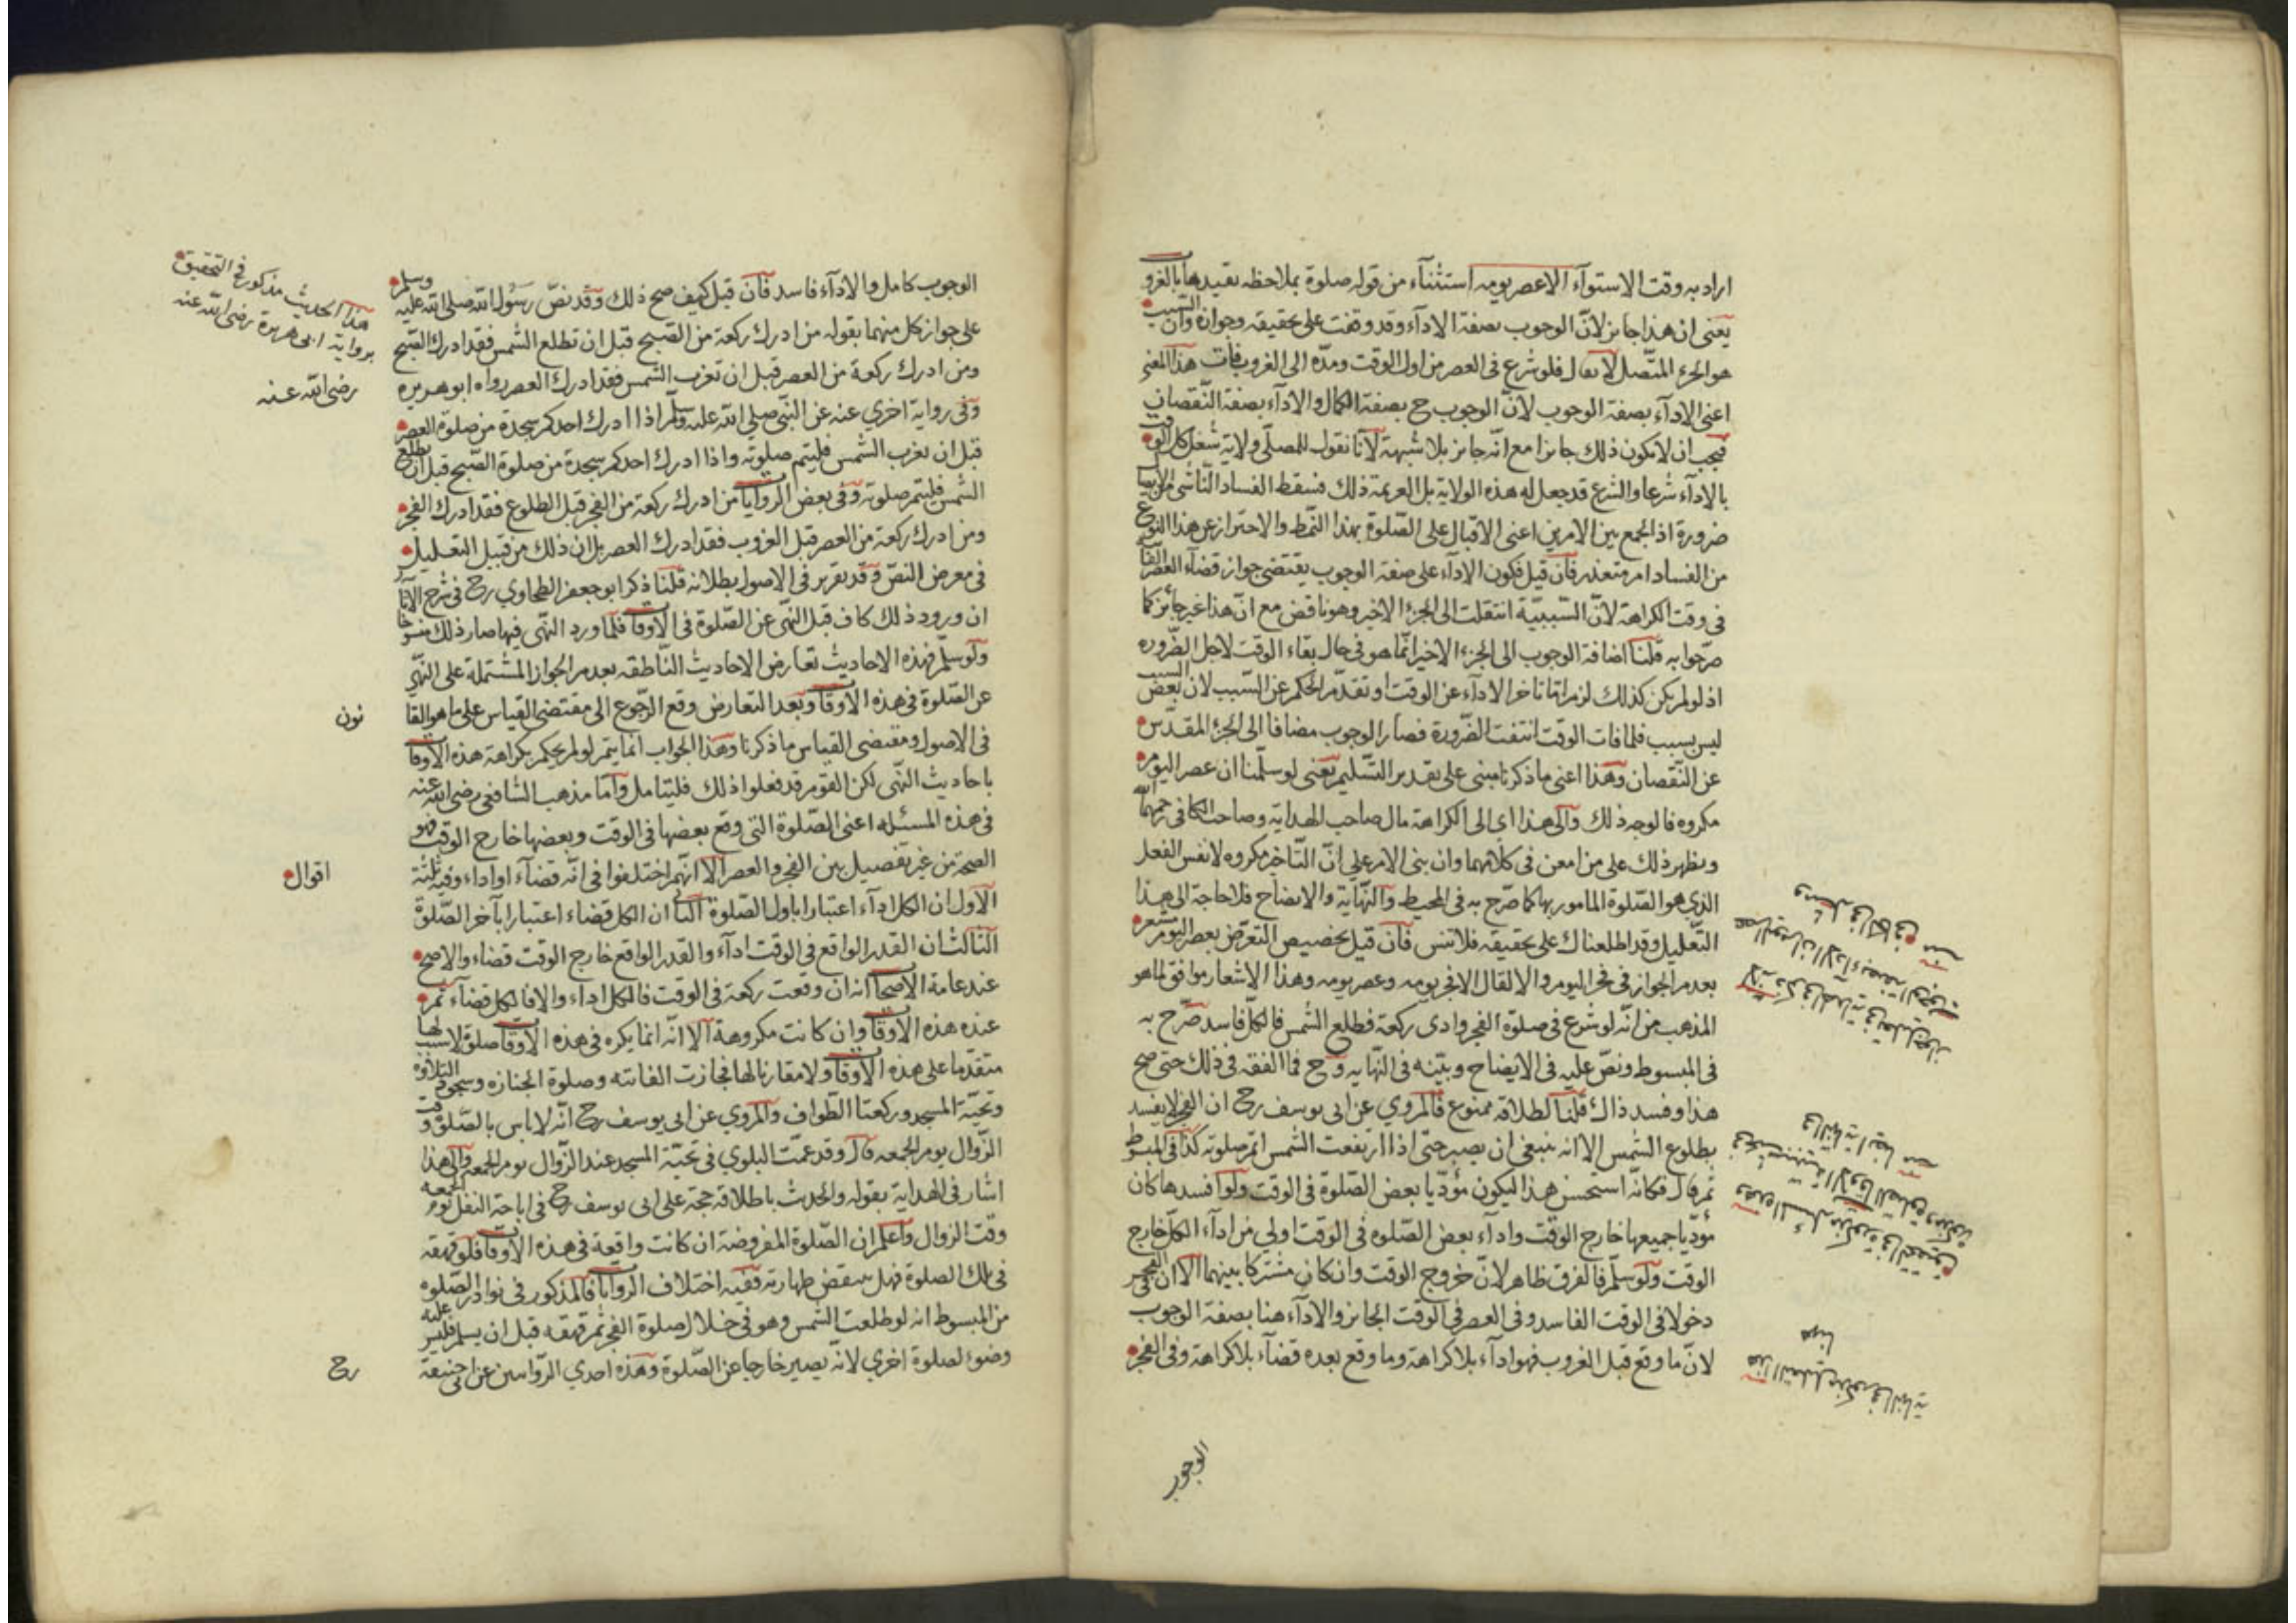 اراد به وقت الاستوآء الا عصر يومه استثنآء من قوله صلوة بملاحظه تقيدها بالغرو
يعنى ان هذا جايز لانّ الوجوب بصفة الادآء وقد وقفت على تحقيقه وجوازه وان السبب
هو الجزء المتّصل لا يقال فلو شرع فى العصر من اول الوقت ومدّه الى الغروب فات هذا المعنى
اعنى الادآء بصفة الوجوب لانّ الوجوب ح بصفة الكمال والادآء بصفة النّقصان
فيجب ان لا يكون ذلك جايزا مع انّه جايز بلا شبهة لآنّا نقول للمصلّى ولاية شغل كل الوقت
بالادآء شرعا والشرع قد جعل له هذه الولاية بل العزيمة ذلك فسقط الفساد النّاشى من
ضرورة اذ الجمع بين الامرين اعنى الاقبال على الصّلوة بهذا النّمط والاحتراز عن هذا النوع
من الفساد امر متعذر فآن قيل فكون الادآء على صفة الوجوب يقتضى جواز قضآء العصر
فى وقت الكراهة لانّ السّببيّة انتقلت الى الجزء الاخير وهو ناقض مع انّ هذا غير جائز كما
صرّحوا به قلنا اضافة الوجوب الى الجزء الاخير انّما هو فى حال بقاء الوقت لاجل الضّروره
اذ لو لم يكن كذلك لزم امّا تاخر الادآء عن الوقت او تقدّم الحكم عن السّبب لان بعض السبب
ليس بسبب فلما فات الوقت انتفت الضّرورة فصار الوجوب مضافا الى الجزء المقدّس
عن النّقصان وهذا اعنى ما ذكرنا مبنى على تقدير التّسليم يعنى لو سلّمنا ان عصر اليوم
مكروه فالوجه ذلك والى هذا اى الى الكراهة مال صاحب الهدايه وصاحب الكافى رحمهما الله
ويظهر ذلك على من امعن فى كلامهما وان بنى الامر على انّ التّاخير مكروه لا نفس الفعل
الذى هو الصّلوة المامور بها كما صرّح به فى المحيط والنّهاية والايضاح فلا حاجة الى هذا
التّعليل وقد اطلعناك على تحقيقه فلا تنس فآن قيل تخصيص التعرّض بعصر اليوم مشعر
بعدم الجواز فى فجر اليوم والا لقال الا فجر يومه وعصر يومه وهذا الاشعار موافق لما هو
المذهب من انّه لو شرع فى صلوة الفجر وادى ركعة فطلع الشّمس فالكلّ فاسد صرّح به
فى المبسوط ونصّ عليه فى الايضاح وبيّنه فى النّهايه وح فما الفقه فى ذلك حتى صح
هذا وفسد ذاك قلنا اطلاقه ممنوع فالمروي عن ابى يوسف رح ان الفجر لا يفسد
بطلوع الشّمس الا انه ينبغى ان يصبر حتى اذا ارتفعت الشمس اتمّ صلوته كذا فى المبسوط
ثم قال فكانّه استحسن هذا ليكون مؤدّيا بعض الصّلوة فى الوقت ولو افسدها كان
مؤدّيا جميعها خارج الوقت واداء بعض الصّلوه فى الوقت اولى من ادآء الكلّ خارج
الوقت ولو سلّم فالفرق ظاهر لانّ خروج الوقت وان كان مشتركا بينهما الا ان فى الفجر
دخولا فى الوقت الفاسد وفى العصر فى الوقت الجايز والادآء هنا بصفة الوجوب
لانّ ما وقع قبل الغروب فهو ادآء بلا كراهة وما وقع بعده قضآء بلا كراهة وفى الفجر
الوجوب
الوجوب كامل والادآء فاسد فآن قيل كيف صح ذلك وقد نصّ رسول الله صلى الله عليه وسلم
على جواز كل منهما بقوله من ادرك ركعة من الصّبح قبل ان تطلع الشّمس فقد ادرك الصّبح
ومن ادرك ركعة من العصر قبل ان تغرب الشّمس فقد ادرك العصر رواه ابو هريره رضى الله عنه
وفى رواية اخري عنه عن النبى صلى الله عليه وسلم اذا ادرك احدكم سجدة من صلوة العصر
قبل ان تغرب الشّمس فليتم صلوته واذا ادرك احدكم سجدة من صلوة الصّبح قبل ان تطلع
الشمس فليتم صلوته وفى بعض الروايات من ادرك ركعة من الفجر قبل الطلوع فقد ادرك الفجر
ومن ادرك ركعة من العصر قبل الغروب فقد ادرك العصر بل ان ذلك من قبيل التعليل
فى معرض النصّ وقد تقرر فى الاصول بطلانه قلنا ذكر ابو جعفر الطحاوي رح فى شرح الآثار
ان ورود ذلك كان قبل النّهى عن الصّلوة فى الاوقات فلما ورد النّهى فيها صار ذلك منسوخا
ولو سلّم فهذه الاحاديث تعارض الاحاديث النّاطقه بعدم الجواز المشتملة على النّهى
عن الصّلوة فى هذه الاوقات وبعد التعارض وقع الرّجوع الى مقتضى القياس على ما هو القانون
فى الاصول ومقتضى القياس ما ذكرنا وهذا الجواب انما يتم لو لم يحكم بكراهة هذه الاوقات
باحاديث النّهى لكن القوم قد فعلوا ذلك فليتامل وآمّا مذهب الشافعى رضى الله عنه
فى هذه المسئله اعنى الصّلوة التى وقع بعضها فى الوقت وبعضها خارج الوقت فهو
الصحّة من غير تفصيل بين الفجر والعصر الا انّهم اختلفوا فى انّه قضآء او اداء وفيه ثلثة اقوال
الاول ان الكل ادآء اعتبارا باول الصّلوة الثانى ان الكل قضاء اعتبارا بآخر الصّلوة
الثالث ان القدر الواقع فى الوقت ادآء والقدر الواقع خارج الوقت قضاء والاصح
عند عامة الاصحاب انه ان وقعت ركعة فى الوقت فالكل اداء والا فالكل قضآء ثم
عنده هذه الاوقات وان كانت مكروهة الا انّه انما يكره فى هذه الاوقات صلوة لا سبب لها
متقدّما على هذه الاوقات ولا مقارنا لها فجازت الفائته وصلوة الجنازه وسجود التلاوه
وتحيّة المسجد وركعتا الطّواف والمروي عن ابى يوسف رح انّه لا باس بالصّلوة وقت
الزّوال يوم الجمعه قال وقد عمّت البلوي فى تحيّة المسجد عند الزّوال يوم الجمعه والى هذا
اشار فى الهداية بقوله والحديث باطلاقه حجة على ابى يوسف رح فى اباحة النفل يوم الجمعه
وقت الزوال وآعلم ان الصّلوة المفروضة ان كانت واقعة فى هذه الاوقات فلو قهقه
فى تلك الصلوة فهل ينتقض طهارته ففيه اختلاف الروايات فالمذكور فى نوادر الصّلوه
من المبسوط انه لو طلعت الشّمس وهو فى خلال صلوة الفجر ثم قهقه قبل ان يسلم فليس عليه
وضوء لصلوة اخري لانّه يصير خارجا عن الصّلوة وهذه احدي الرّوايتين عن ابى حنيفة رح
هذا الحديث مذكور فى التحقيق
برواية ابى هريرة رضى الله عنه